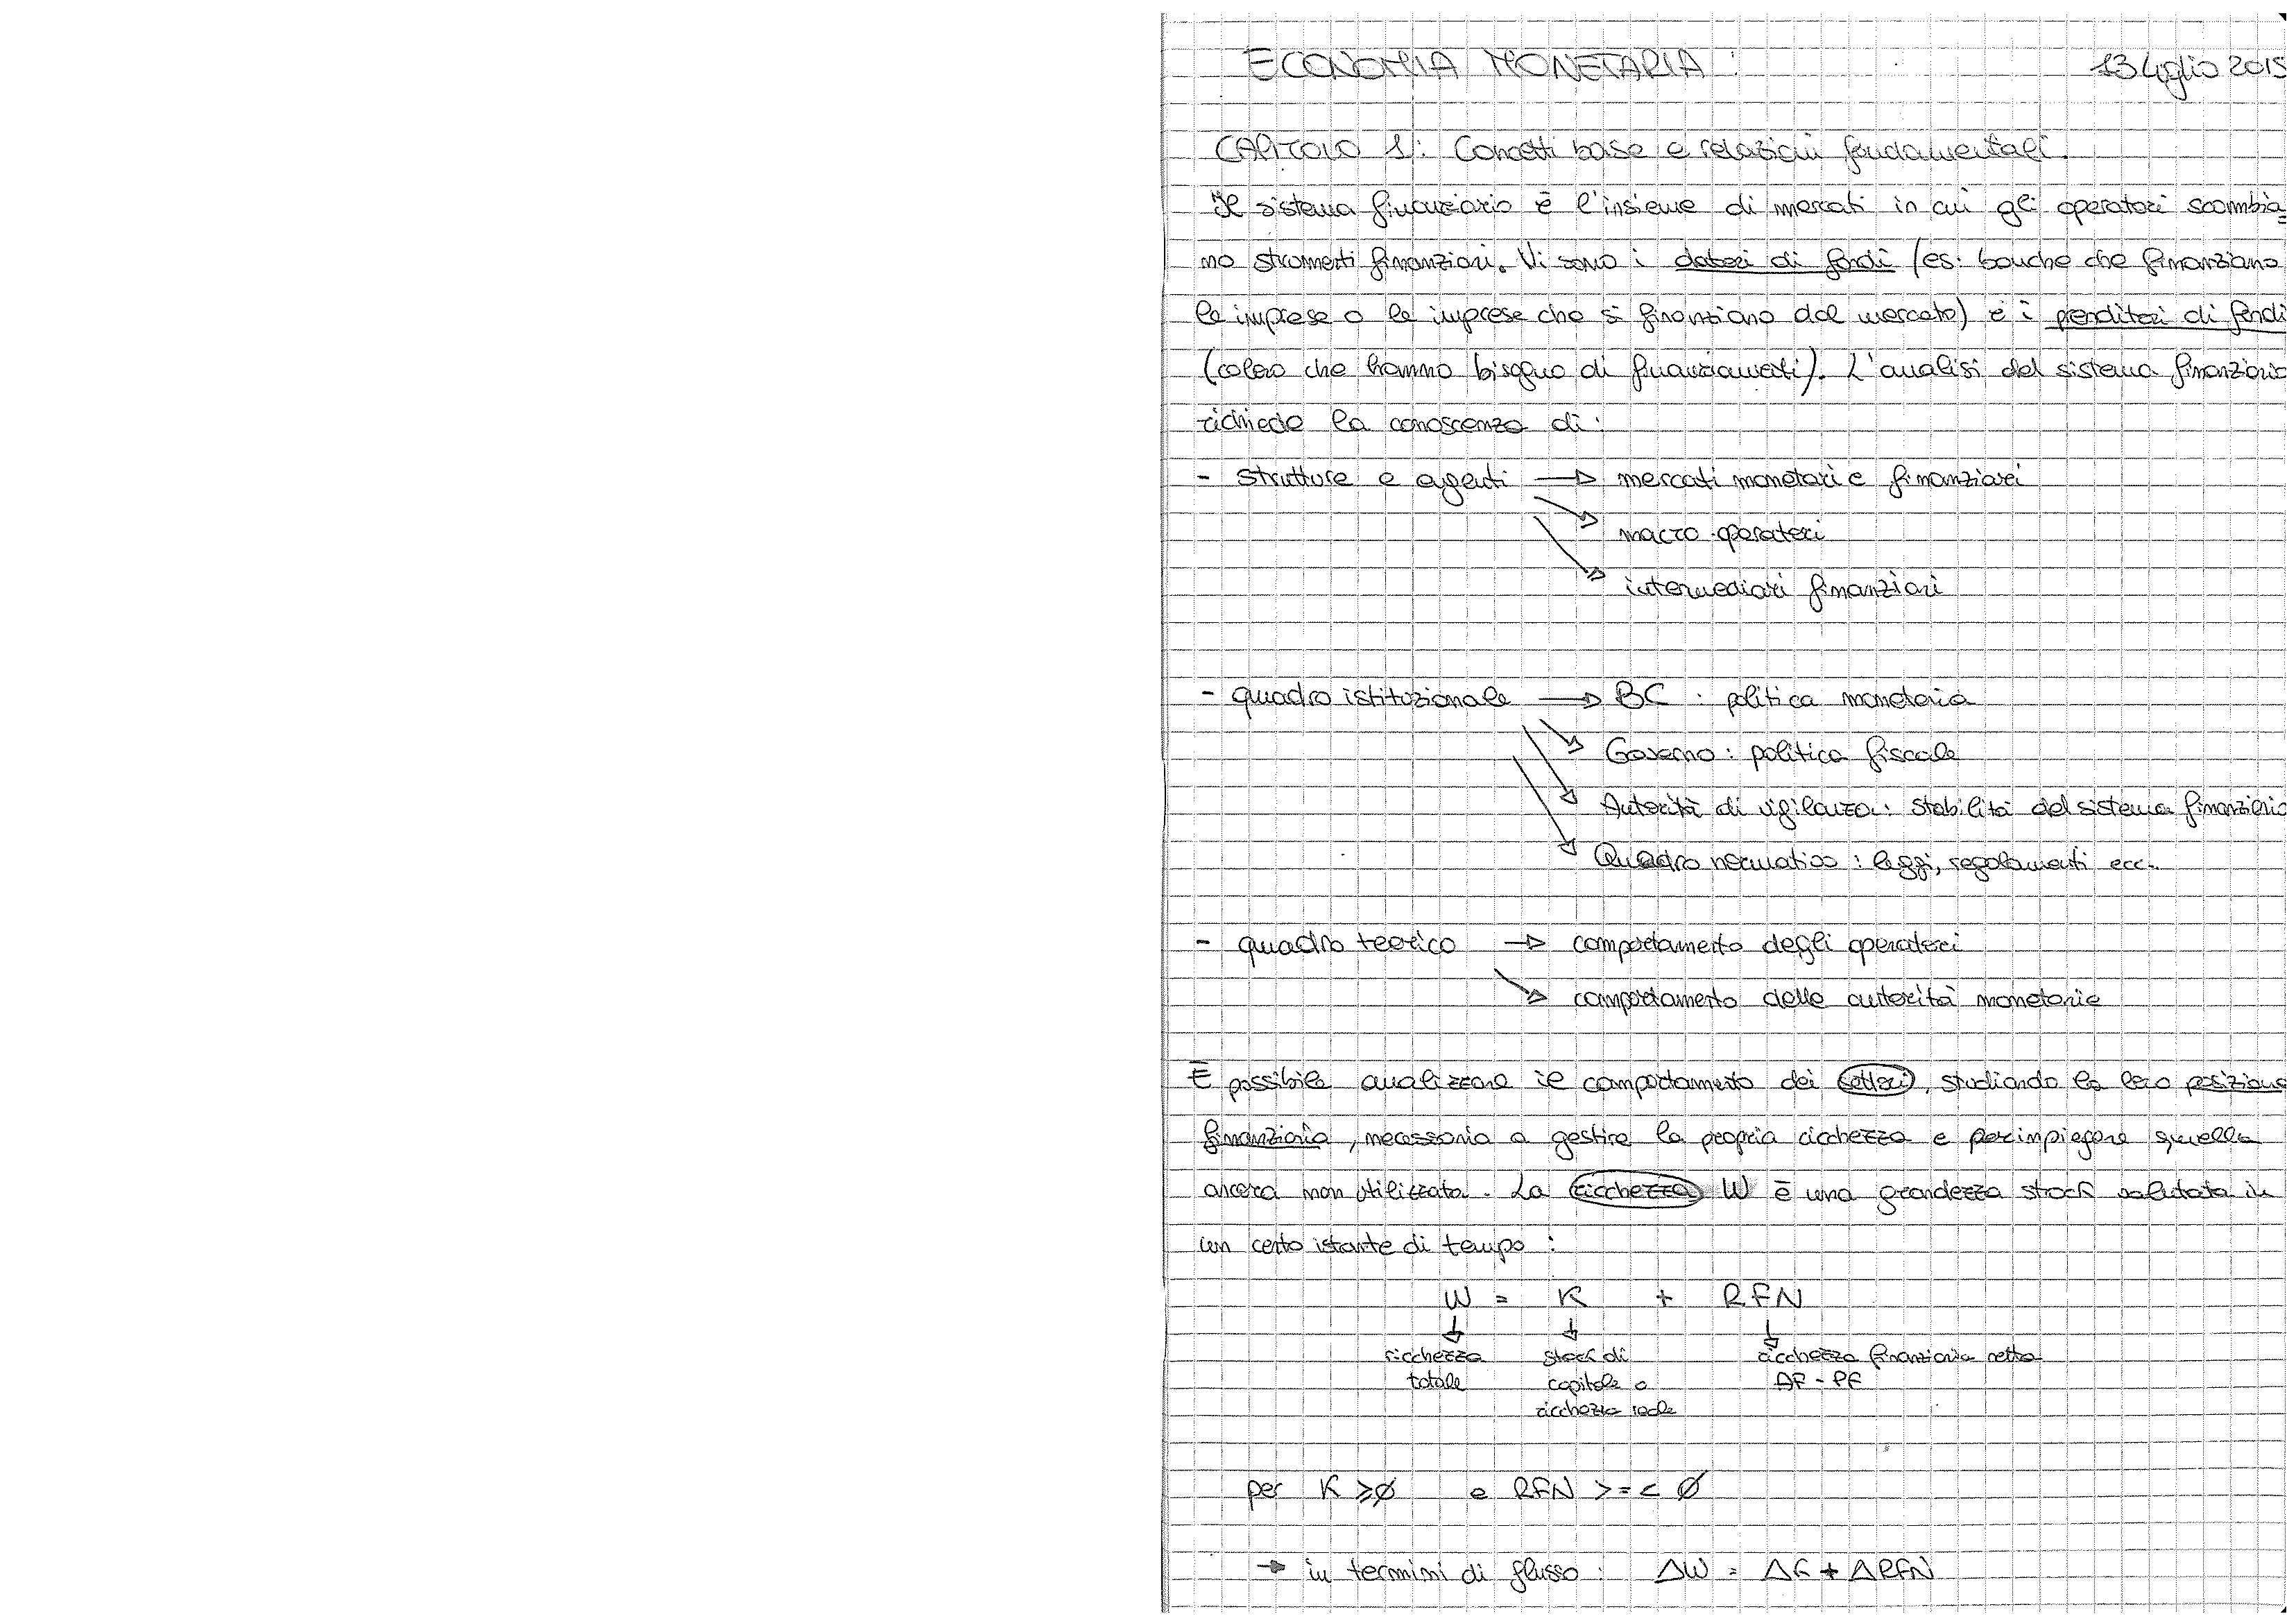 ECONOMIA MONETARIA : 13 luglio 2015
CAPITOLO 1: Concetti base e relazioni fondamentali.
Il sistema finanziario è l'insieme di mercati in cui gli operatori scambia
no strumenti finanziari. Vi sono i datori di fondi (es: banche che finanziano
le imprese o le imprese che si finanziano dal mercato) e i prenditori di fondi
(coloro che hanno bisogno di finanziamenti). L'analisi del sistema finanziario
richiede la conoscenza di:
- strutture e agenti → mercati monetari e finanziari
→ macro operatori
→ intermediari finanziari
- quadro istituzionale → BC : politica monetaria
→ Governo : politica fiscale
→ Autorità di vigilanza : stabilità del sistema finanziario
→ Quadro normativo : leggi, regolamenti ecc..
- quadro teorico → comportamento degli operatori
→ comportamento delle autorità monetarie
È possibile analizzare il comportamento dei settori, studiando la loro posizione
finanziaria, necessaria a gestire la propria ricchezza e per impiegare quella
ancora non utilizzata. La ricchezza W è una grandezza stock valutata in
un certo istante di tempo :
W = K + RFN
↓ ↓ ↓
ricchezza stock di ricchezza finanziaria netta
totale capitale o AF - PF
ricchezza reale
per K ≥ ∅ e RFN > = < ∅
→ in termini di flusso : ΔW = ΔK + ΔRFN